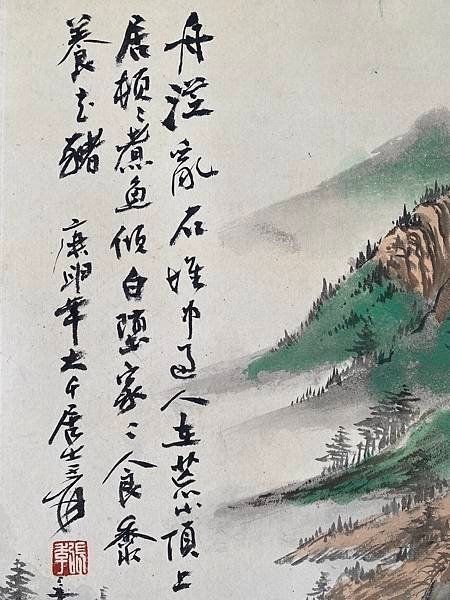 舟從亂石堆中過人在荒山頂上
居頓〻煮魚傾白墮家〻食黍
養玄豬
卯年大千居士爰
張